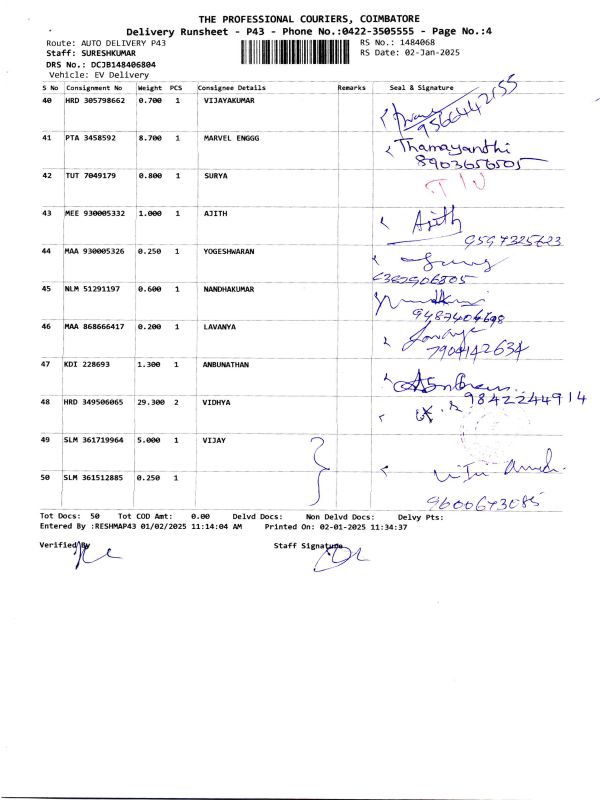 THE PROFESSIONAL COURIERS, COIMBATORE
Delivery Runsheet - P43 - Phone No.:0422-3505555 - Page No.:4
Route: AUTO DELIVERY P43 RS No.: 1484068
Staff: SURESHKUMAR RS Date: 02-Jan-2025
DRS No.: DCJB148406804
Vehicle: EV Delivery
S No Consignment No Weight PCS Consignee Details Remarks Seal & Signature
40 HRD 305798662 0.700 1 VIJAYAKUMAR
9566442155
41 PTA 3458592 8.700 1 MARVEL ENGGG Thamayanthi
8903656505
42 TUT 7049179 0.800 1 SURYA
43 MEE 930005332 1.000 1 AJITH Ajith
9597325623
44 MAA 930005326 0.250 1 YOGESHWARAN
6382906805
45 NLM 51291197 0.600 1 NANDHAKUMAR
9487404698
46 MAA 868666417 0.200 1 LAVANYA
7904142634
47 KDI 228693 1.300 1 ANBUNATHAN
9842244914
48 HRD 349506065 29.300 2 VIDHYA
49 SLM 361719964 5.000 1 VIJAY
50 SLM 361512885 0.250 1
9600673085
Tot Docs: 50 Tot COD Amt: 0.00 Delvd Docs: Non Delvd Docs: Delvy Pts:
Entered By :RESHMAP43 01/02/2025 11:14:04 AM Printed On: 02-01-2025 11:34:37
Verified By Staff Signature